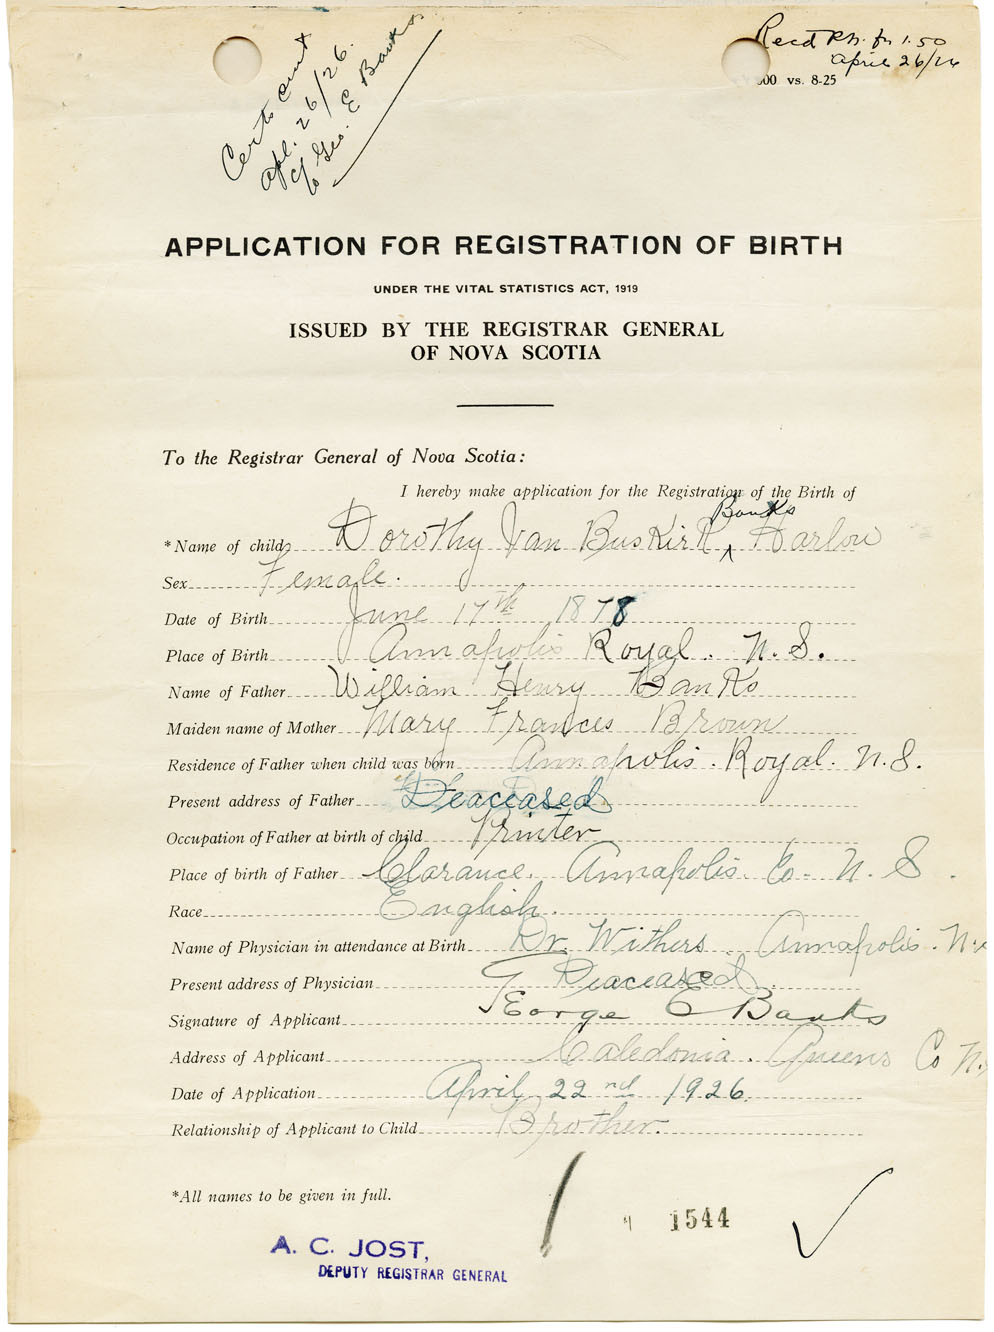 Recd Rh. fr 1.50
April 26/26
00 vs. 8-25
Certs sent
Apl. 26/26.
c/o Geo. E Banks
APPLICATION FOR REGISTRATION OF BIRTH
UNDER THE VITAL STATISTICS ACT, 1919
ISSUED BY THE REGISTRAR GENERAL
OF NOVA SCOTIA
To the Registrar General of Nova Scotia:
I hereby make application for the Registration of the Birth of
Banks
*Name of child Dorothy Van Buskirk ^ Harlow
Sex Female.
Date of Birth June 17th 1878
Place of Birth Annapolis Royal. N. S.
Name of Father William Henry Banks
Maiden name of Mother Mary Frances Brown
Residence of Father when child was born Annapolis. Royal. N. S.
Present address of Father Deaceased
Occupation of Father at birth of child Printer
Place of birth of Father Clarance. Annapolis. Co- N. S.
Race English.
Name of Physician in attendance at Birth Dr. Withers. Annapolis. N.
Present address of Physician Deaceased.
Signature of Applicant George E Banks
Address of Applicant Caledonia. Queens Co N.
Date of Application April 22nd 1926.
Relationship of Applicant to Child Brother.
*All names to be given in full.
1544
A. C. JOST,
DEPUTY REGISTRAR GENERAL